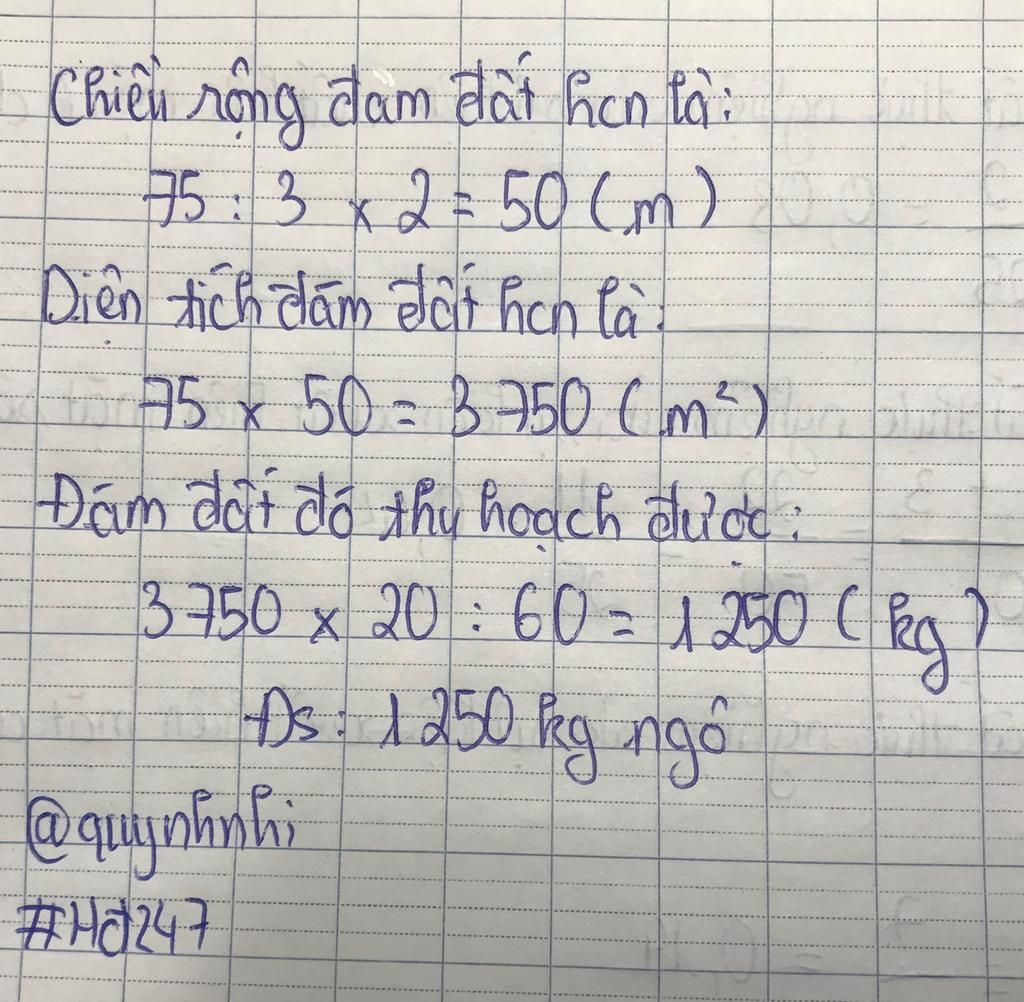 Chiều rộng đam đất hcn là:
75 : 3 x 2 = 50 ( m )
Diện tích đám đất hcn là:
75 x 50 = 3 750 ( m² )
Đám đất đó thu hoạch được:
3 750 x 20 : 60 = 1 250 ( kg )
Đs: 1 250 kg ngô
@quynhnhi
#Hd247